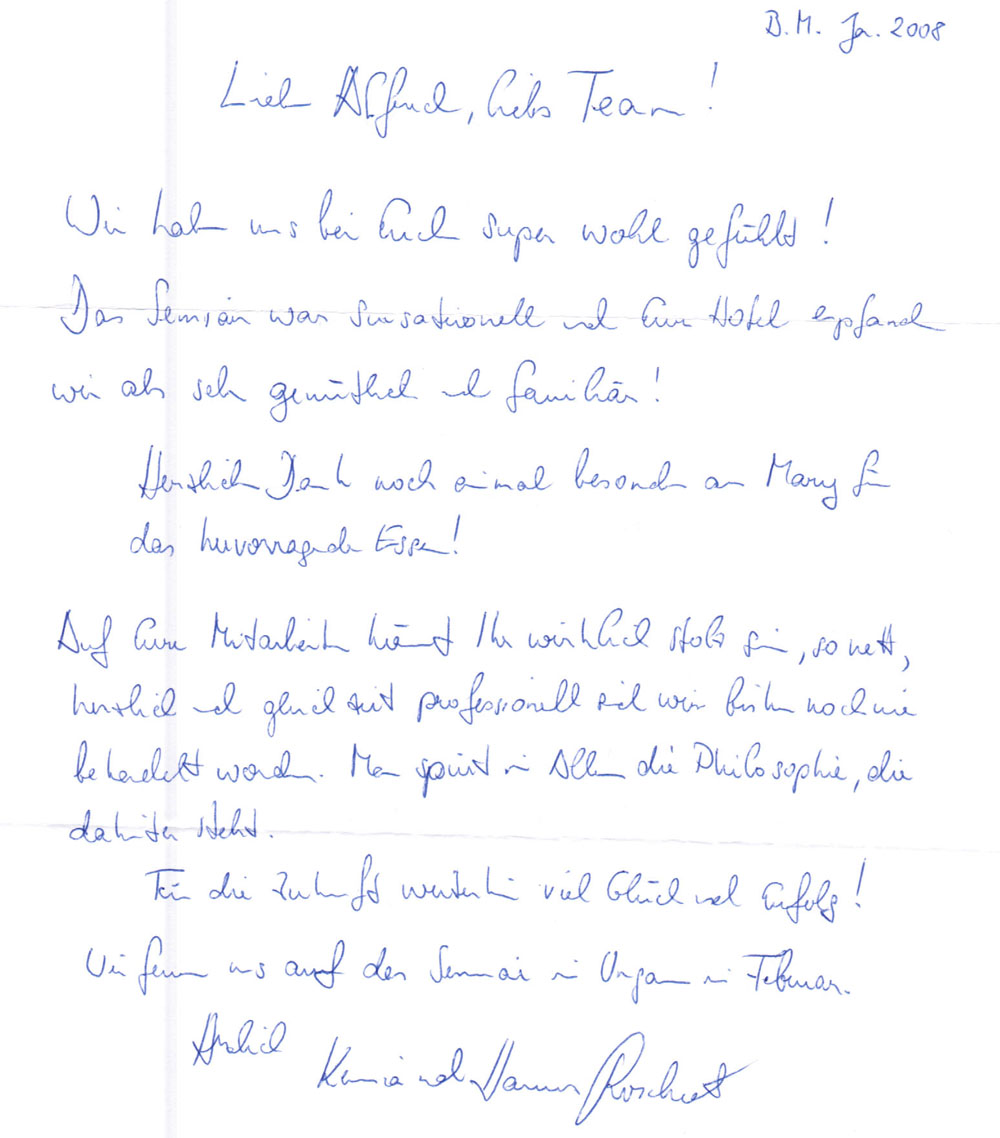 B.M. Ja. 2008
Lieber Alfred, liebes Team!
Wir haben uns bei Euch super wohl gefühlt!
Das Seminar war sensationell und Euer Hotel empfand
wir als sehr gemütlich und familiär!
Herzlichen Dank noch einmal besonders an Mary für
das hervorragende Essen!
Auf Eure Mitarbeiter könnt Ihr wirklich stolz sein, so nett,
herzlich und gleichzeit professionell sind wir bisher noch nie
behandelt worden. Man spürt in Allem die Philosophie, die
dahinter steht.
Für die Zukunft weiterhin viel Glück und Erfolg!
Wir freuen uns auf das Seminar in Ungarn im Februar.
Herzlich
und Hannes